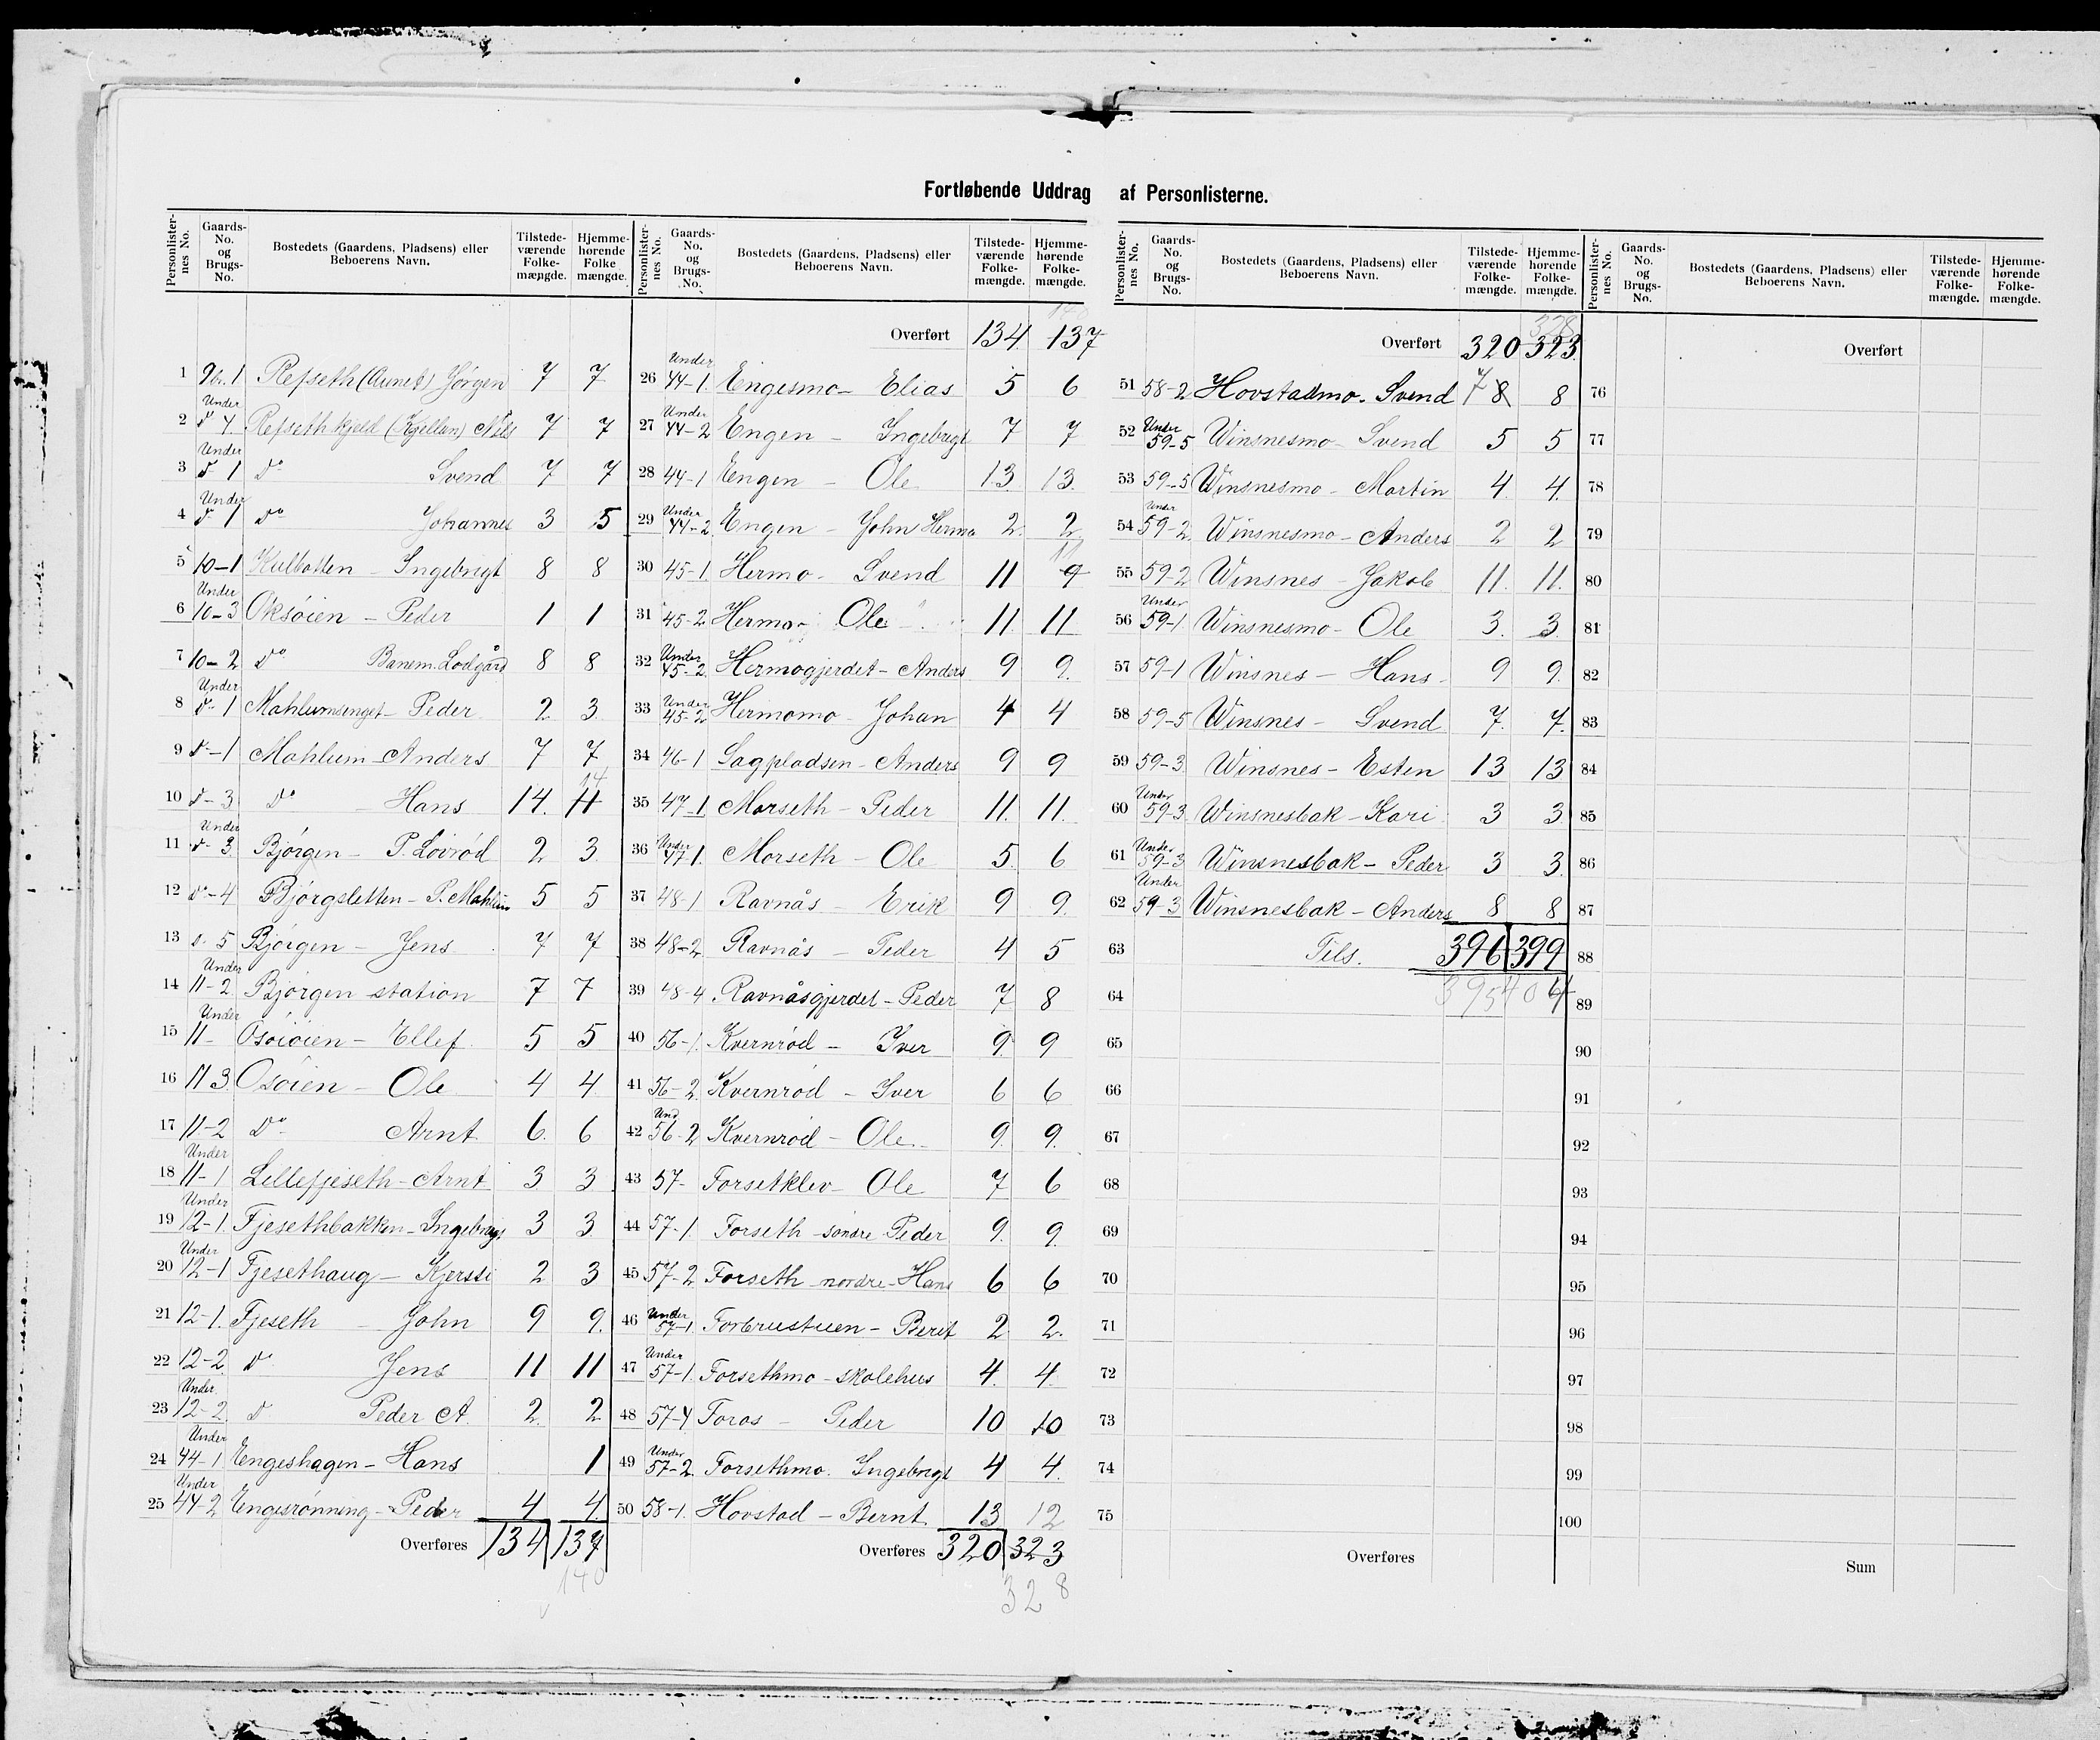 Fortløbende Uddrag af Personlisterne.
Personlisternes No. Gaards-No. og Brugs-No. Bostedets (Gaardens, Pladsens) eller Beboerens Navn. Tilstedeværende Folkemængde. Hjemmehørende Folkemængde.
1 9 br. 1 Refseth (Aunet) Jørgen 7 7
2 Under d 4 Refsethkjeld (Kjellan) Nils 7 7
3 Under d 1 do Svend 7 7
4 Under d 1 do Johannes 3 5
5 10-1 Kulbotten - Ingebrigt 8 8
6 Under 10-3 Oksöien - Peder 1 1
7 10-2 do Banem. Lodgård 8 8
8 Under d-1 Mahlumsenget - Peder 2 3
9 d-1 Mahlum - Anders 7 7
10 d-3 do - Hans 14. 11 14
11 Under d-3 Bjørgen - P. Lövröd 2 3
12 do-4 Bjørgsletten - P. Mahlum 5 5
13 d. 5 Bjørgen - Jens 7 7
14 Under 11-2 Bjørgen station 7 7
15 Under 11- Osöiöien - Ellef 5 5
16 11 3 Osöien - Ole 4 4
17 11-2 do Arnt 6. 6
18 Under 11-1 Lillefjeseth - Arnt 3 3
19 Under 12-1. Fjesethbakken - Ingebrigt 3 3
20 Under 12-1 Fjesethaug - Kjersti 2 3
21 12-1. Fjeseth - John 9 9.
22 12-2 do Jens 11 11
23 Under 12-2 d Peder A. 2. 2
24 Under 44-1 Engeshagen - Hans 1
25 Under 44-2 Engesrönning - Peder 4 4
Overføres 134 137
140
Overført 134. 137
140
26 Under 44-1. Engesmo - Elias 5 6
27 Under 44-2 Engen - Ingebrigt 7 7
28 44-1 Engen - Ole 13. 13.
29 Under 44-2 Engen - John Hermo 2. 2
30 45-1. Hermo - Svend 11 9 11
31 45-2 Hermo - Ole 11. 11
32 Under 45-2. Hermogjerdet - Anders 9 9.
33 Under 45-2 Hermomo - Johan 4 4
34 46-1 Sagpladsen - Anders 9 9
35 47-1 Morseth - Peder 11. 11.
36 Under 47-1. Morseth - Ole 5. 6
37 48-1 Ravnås - Erik 9 9.
38 48-2 Ravnås - Peder 4 5
39 48-4 Ravnåsgjerdet - Peder 7 8
40 56-1. Kvernröd - Iver 9. 9
41 56-2. Kvernröd - Iver 6 6
42 Und 56-2 Kvernröd - Ole 9. 9.
43 57- Forsetklev - Ole 7 6
44 57-1 Forseth söndre Peder 9. 9.
45 57-2 Forseth nordre - Hans 6 6
46 Under 57-1 Forbrustuen - Berit 2 2.
47 Under 57-1. Forsethmo - skolehus 4. 4.
48 57-4 Foros - Peder 10 10
49 Under 57-2. Forsethmo. Ingebrigt 4 4.
50 58-1. Hovstad - Bernt. 13 12
Overføres 320 323
328
Overført 320 323
328
51 58-2 Hovstadmo - Svend 7 8 8
52 Under 59-5 Winsnesmo - Svend 5 5
53 59-5 Winsnesmo - Martin 4. 4.
54 Under 59-2 Winsnesmo - Anders 2 2
55 59-2 Winsnes - Jakob 11. 11.
56 Under 59-1. Winsnesmo - Ole 3. 3
57 59-1 Winsnes - Hans - 9 9.
58 59-5 Winsnes - Svend 7. 7.
59 59-3 Winsnes - Esten 13 13
60 Under 59-3 Winsnesbak - Kari 3 3
61 Under 59-3 Winsnesbak - Peder 3 3.
62 Under 59-3 Winsnesbak - Anders 8 8
63 Tils. 396 399
64 395 404
65
66
67
68
69
70
71
72
73
74
75
Overføres
Overført
76
77
78
79
80
81
82
83
84
85
86
87
88
89
90
91
92
93
94
95
96
97
98
99
100
Sum